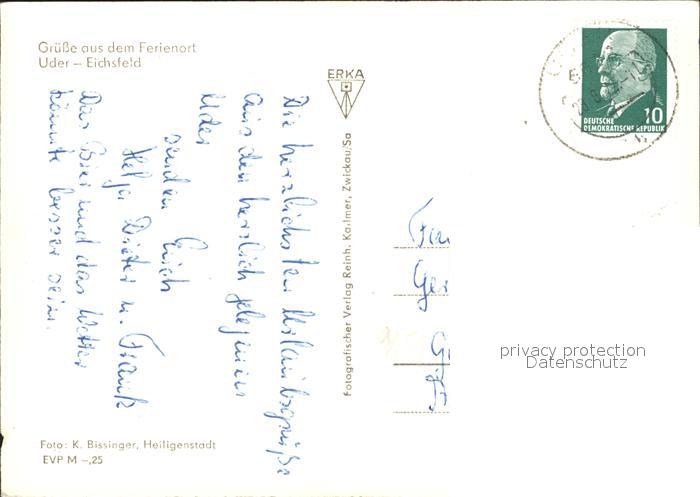 Grüße aus dem Ferienort
Uder – Eichsfeld
ERKA
10
DEUTSCHE
DEMOKRATISCHE REPUBLIK
Die herzlichsten Urlaubsgrüße
aus dem herrlich gelegenen
Uder
senden Euch
Helga Dieter u. Frank
Das Bier und das Wetter
könnte besser sein.
Fotografischer Verlag Reinh. Kallmer, Zwickau/Sa
Ger
privacy protection
Datenschutz
Foto: K. Bissinger, Heiligenstadt
EVP M –,25